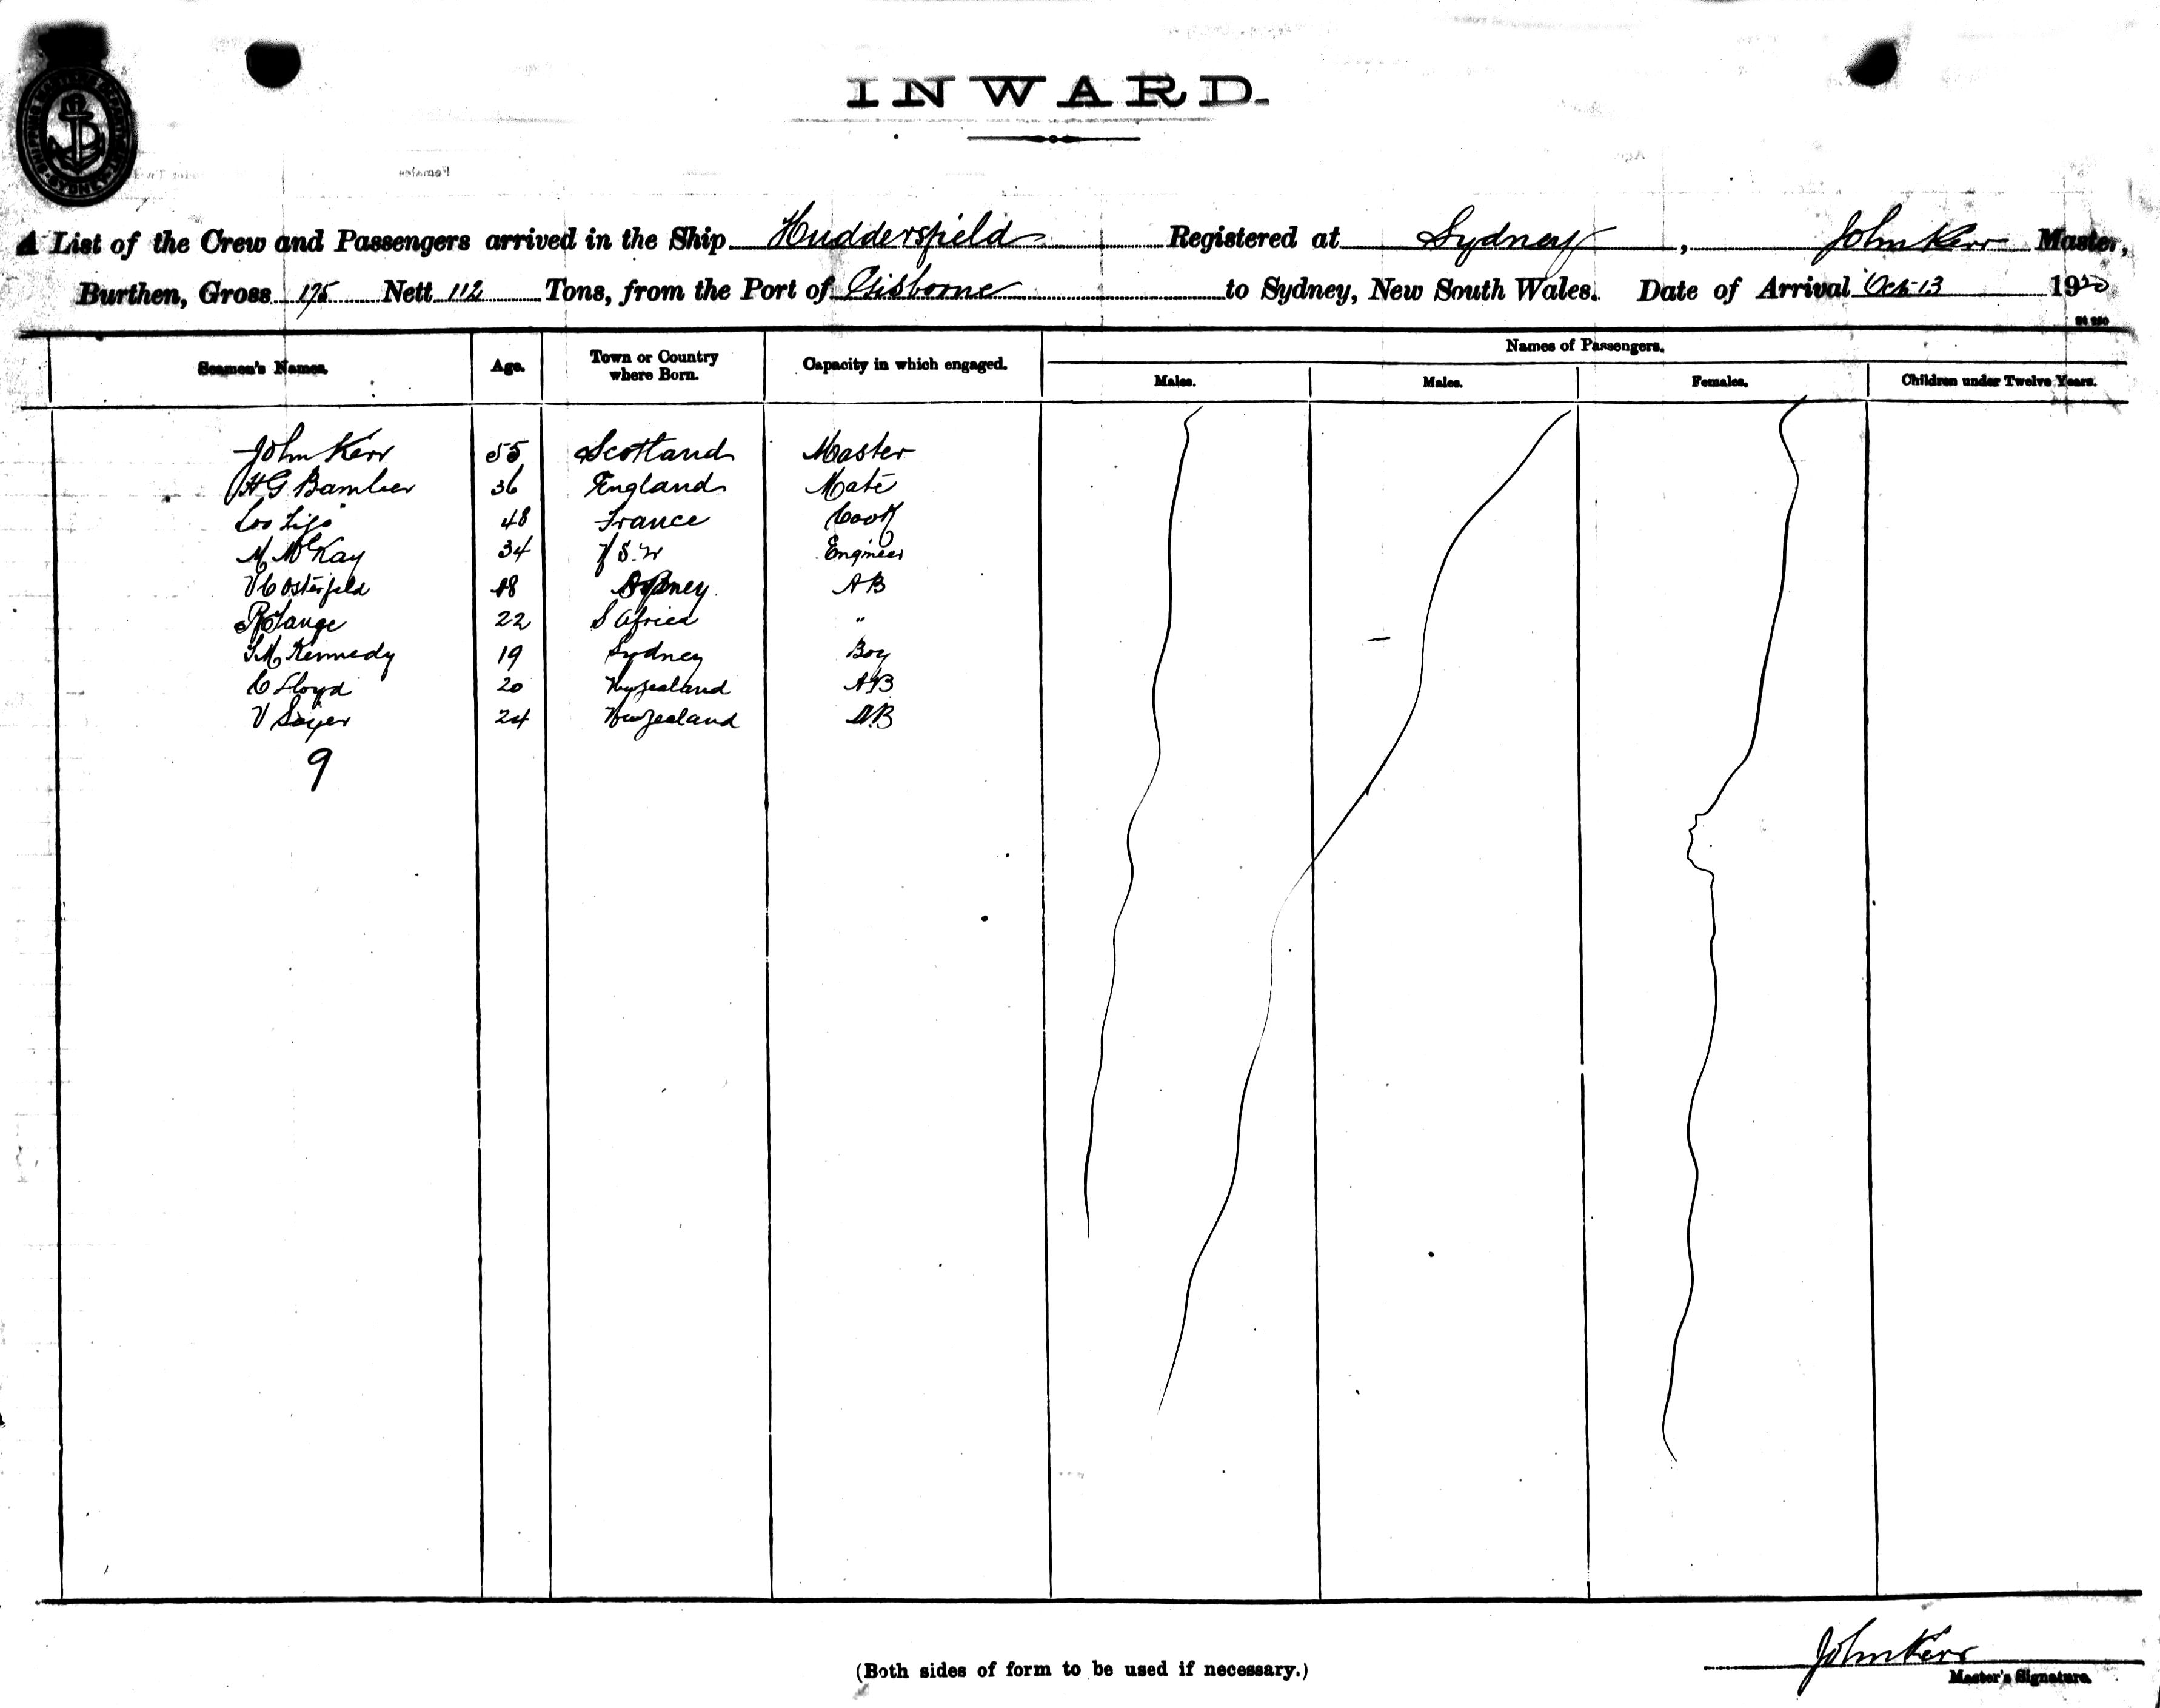 INWARD.
A List of the Crew and Passengers arrived in the Ship Huddersfield Registered at Sydney, John Kerr Master,
Burthen, Gross 175 Nett 112 Tons, from the Port of Gisborne to Sydney, New South Wales. Date of Arrival Oct 13 1920
Seamen's Names. Age. Town or Country where Born. Capacity in which engaged. Names of Passengers.
Males. Males. Females. Children under Twelve Years.
John Kerr 55 Scotland Master
H G Bamber 36 England Mate
48 France Cook
M McKay 34 S.W Engineer
V C Osterfeld 18 Sydney AB
Lange 22 S Africa "
Kennedy 19 Sydney Boy
C Lloyd 20 New Zealand AB
V Sayer 24 New Zealand AB
9
John Kerr
(Both sides of form to be used if necessary.) Master's Signature.
SYDNEY